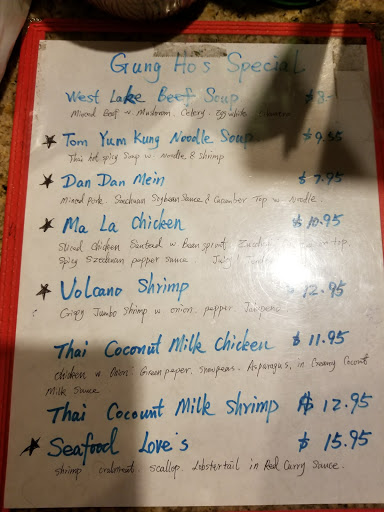 Gung Ho's Special
West Lake Beef Soup $8-
Mixed Beef w. Mushroom. Celery. Egg white
★ Tom Yum Kung Noodle Soup $9.55
Thai hot spicy Soup w. Noodle & shrimp
★ Dan Dan Mein $7.95
Minced pork. Szechuan Soybean Sauce & Cucumber Top w. Noodle.
★ Ma La Chicken $10.95
Sliced Chicken Sauteed w Bean sprout, Zucchini on top
Spicy Szechuan pepper sauce. Juicy
★ Volcano Shrimp $12.95
Crispy Jumbo Shrimp w onion. pepper. Jalapeno
Thai Coconut Milk Chicken $11.95
Chicken w Onion. Green peper. snowpeas. Asparagus, in Creamy Coconut
Milk Sauce
Thai Cocount Milk Shrimp $12.95
★ Seafood Love's $15.95
shrimp crabmeat. scallop. Lobstertail in Red Curry Sauce.